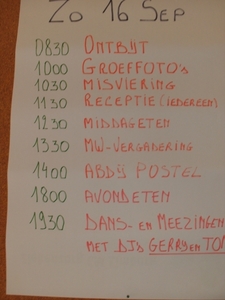 ZO 16 SEP
0830 ONTBIJT
1000 GROEPFOTO'S
1030 MISVIERING
1130 RECEPTIE (IEDEREEN)
1230 MIDDAGETEN
1330 MW-VERGADERING
1400 ABDIJ POSTEL
1800 AVONDETEN
1930 DANS- EN MEEZINGEN
MET DJS GERRY EN TON